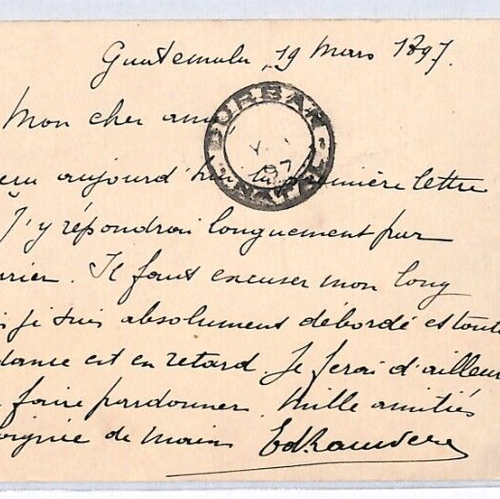 Guatemala, 19 Mars 1897.
Mon cher ami
DURBAN
97
NATAL
aujourd'hui la première lettre
J'y répondrai longuement par
rier. Il faut excuser mon long
je suis absolument débordé et toute
dance est en retard. Je ferai d'ailleur
faire pardonner. Mille amitiés
oignée de main